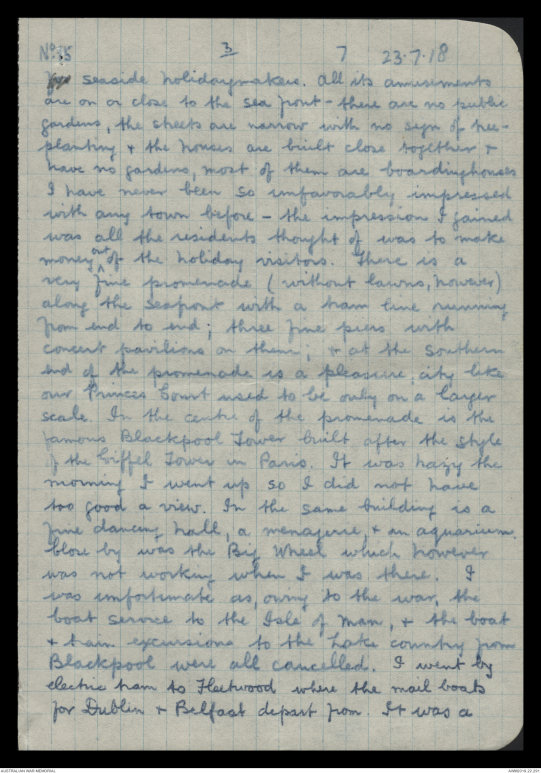 No. 35 3 7 23.7.18
for seaside holidaymakers. All its amusements
are on or close to the sea front - there are no public
gardens, the streets are narrow with no sign of tree-
planting & the houses are built close together &
have no gardens, most of them are boardinghouses
I have never been so unfavorably impressed
with any town before - the impression I gained
was all the residents thought of was to make
money out of the holiday visitors. There is a
very fine promenade (without lawns, however)
along the seafront with a tram line running
from end to end; three fine piers with
concert pavilions on them, & at the southern
end of the promenade is a pleasure city like
our Princes Court used to be only on a larger
scale. In the centre of the promenade is the
famous Blackpool Tower built after the style
of the Eiffel Tower in Paris. It was hazy the
morning I went up so I did not have
too good a view. In the same building is a
fine dancing hall, a menagerie, & an aquarium.
Close by was the Big Wheel which however
was not working when I was there. I
was unfortunate as, owing to the war, the
boat service to the Isle of Man, & the boat
& train excursions to the Lake country from
Blackpool were all cancelled. I went by
electric tram to Fleetwood where the mail boats
for Dublin & Belfast depart from. It was a
AUSTRALIAN WAR MEMORIAL